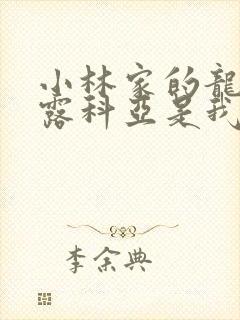 小林家的龍
露科亞是我
李余典